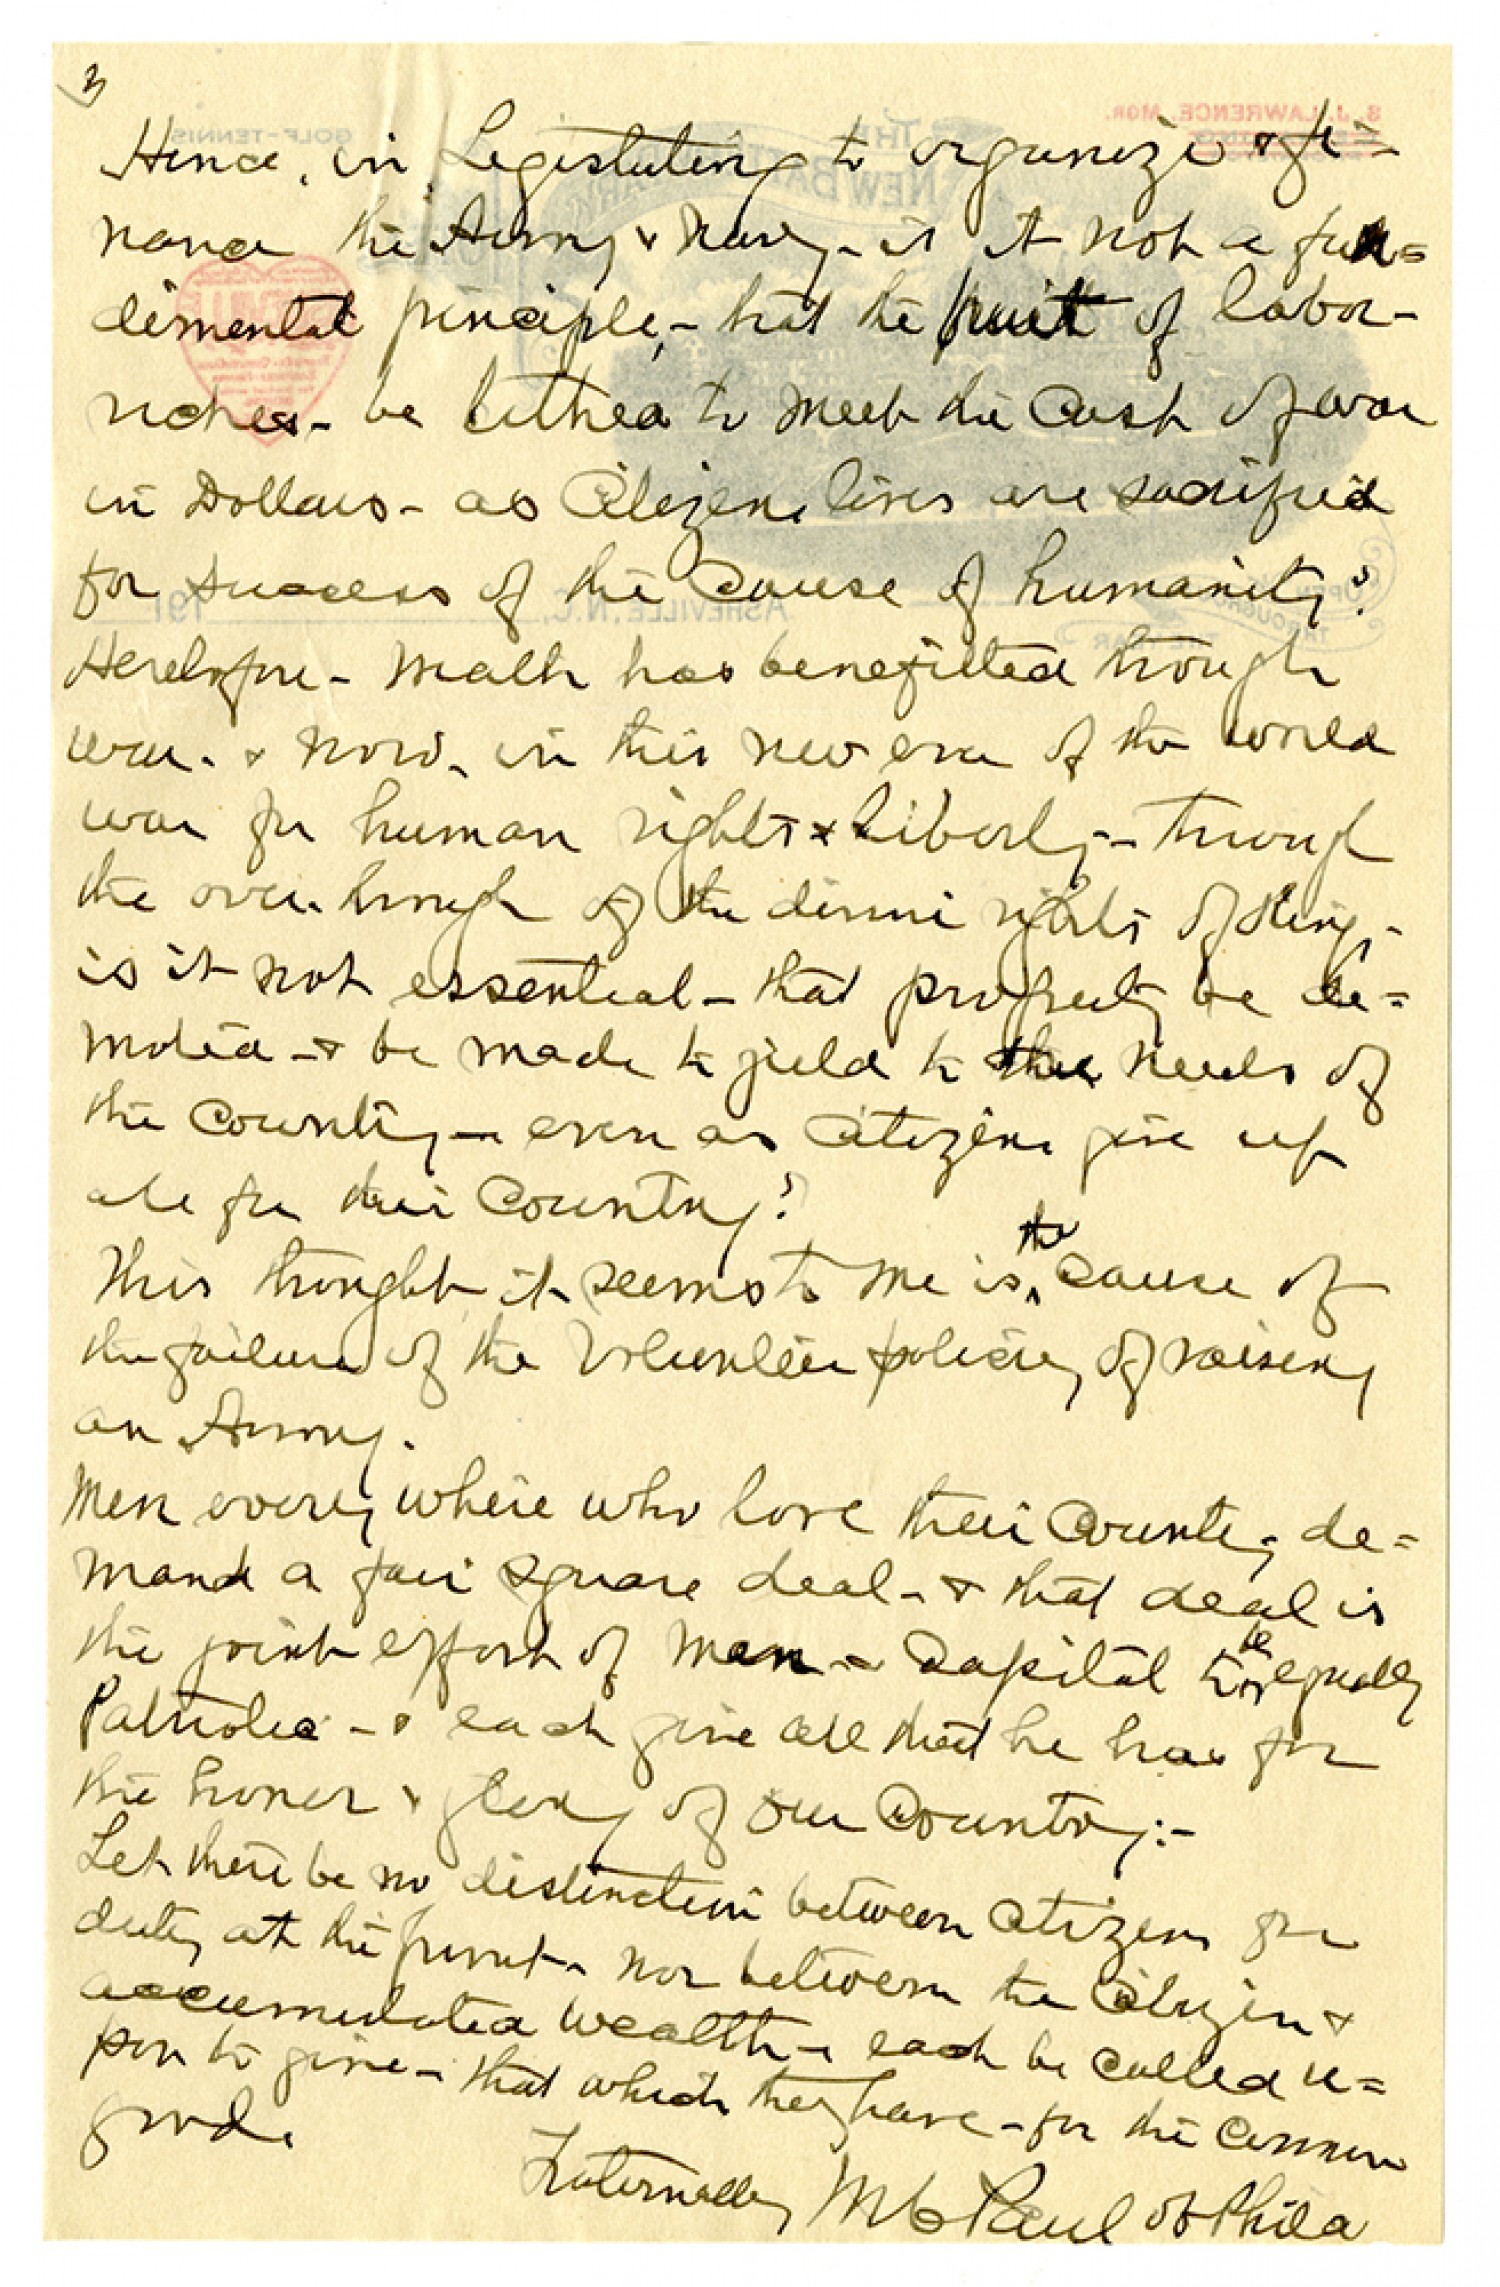 3
Hence, in Legislating to organize & fi-
nance the Army & Navy - is it not a fun=
dimental principle, - that the fruit of labor -
riches - be tithed to meet the Cost of war
in Dollars - as Citizens lives are sacrificed
for success of the Cause of humanity?
Heretofore - Wealth has benefitted through
war. & now, in this new era of the world
war for human rights & Liberty - through
the overthrough of the divine rights of Kings -
is it not essential - that property be de=
moted - & be made to yield to the needs of
the Country - even as Citizens give up
all for their Country?
This thought it seems to me is the cause of
the failure of the Volunteer policy of raising
an Army.
Men every where who love their Country, de=
mand a fair square deal - & that deal is
the joint effort of Men - Capital to be equally
Patriotic - & each give all that he has for
the honor & glory of our Country:-
Let there be no distinction between Citizens for
duty at the front - nor between the Citizen &
accumulated wealth - each be called u=
pon to give - that which they have - for the Common
good.
Fraternally M C Paul of Phila
S. J. LAWRENCE, MGR.
GOLF-TENNIS
THE
NEW BATTERY PARK
ASHEVILLE, N.C., 191
OPEN
THROUGHOUT
THE YEAR